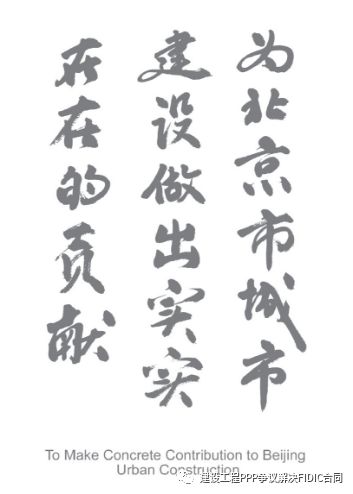 为北京市城市
建设做出实实
在在的贡献
To Make Concrete Contribution to Beijing
Urban Construction
建设工程PPP争议解决FIDIC合同